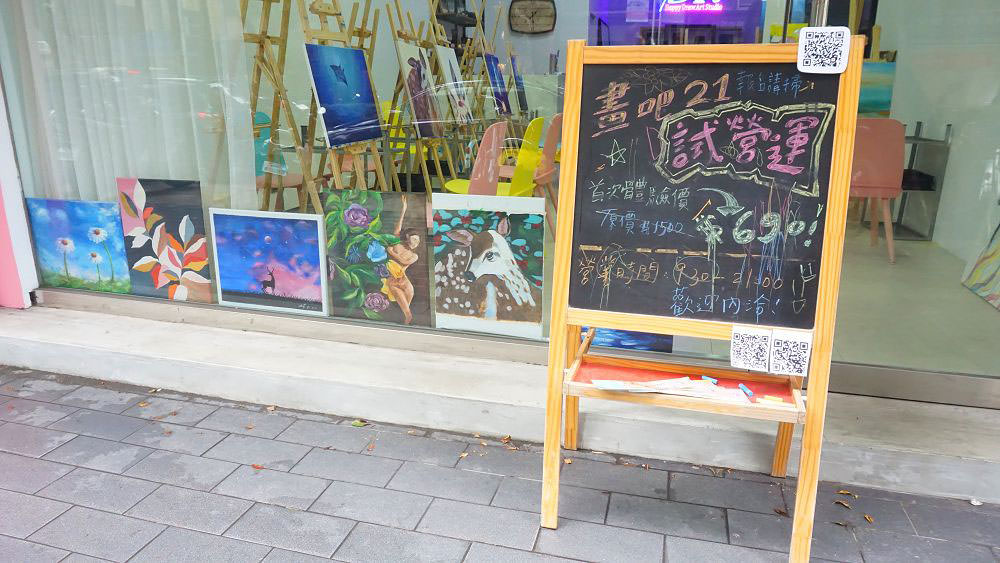 Happy Draw Art Studio
畫吧21 報名請掃
試營運
首次體驗價
$690!
原價$1500
營業時間:
21:00
歡迎內洽!